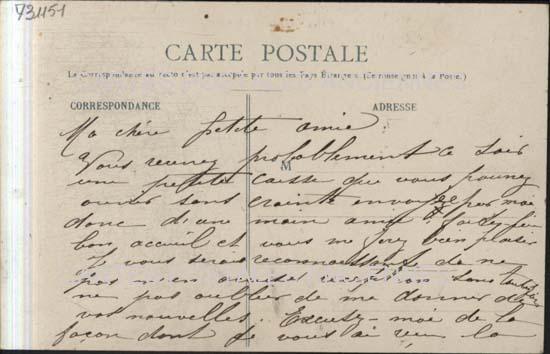 731151
CARTE POSTALE
La Correspondance au recto n'est pas acceptée par tous les Pays Étrangers. (Se renseigner à la Poste.)
CORRESPONDANCE
ADRESSE
M
Ma chère petite amie
Vous recevrez probablement ce soir
une petite caisse que vous pourrez
ouvrir sans crainte envoyée par moi
donc d'une main amie faites lui
bon accueil et vous me ferez bien plaisir
Je vous serais reconnaissante de ne
pas m'en accuser réception sans toutefois
ne pas oublier de me donner de
vos nouvelles. Excusez-moi de la
façon dont je vous ai la